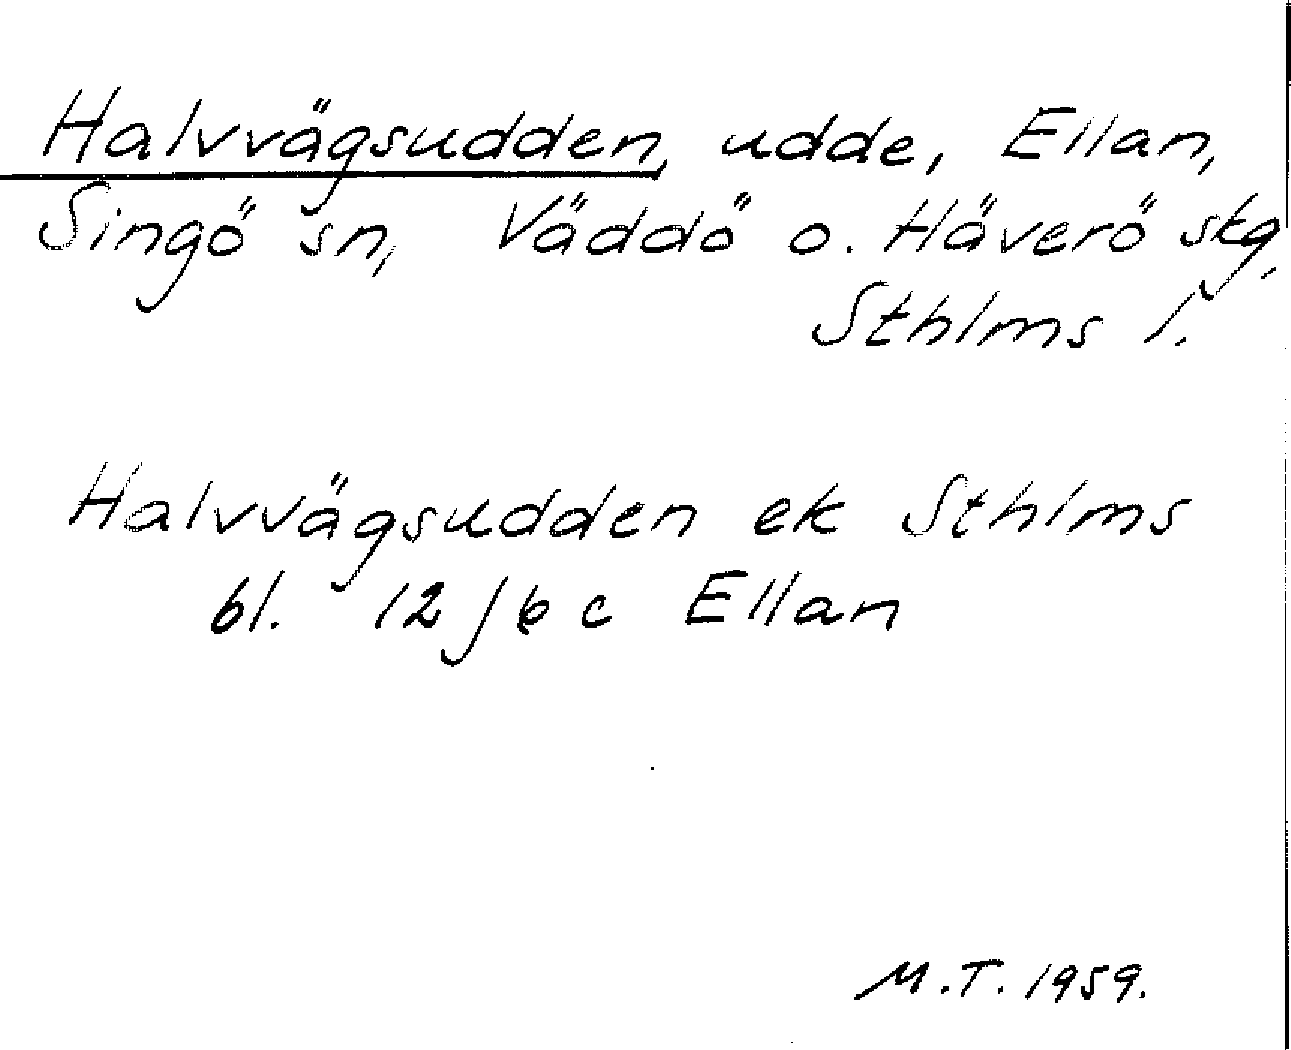 Halvvägsudden, udde, Ellan,
Singö sn, Väddö o. Häverö skg,
Sthlms l.
Halvvägsudden ek Sthlms
bl. 12 j 6 c Ellan
M.T. 1959.